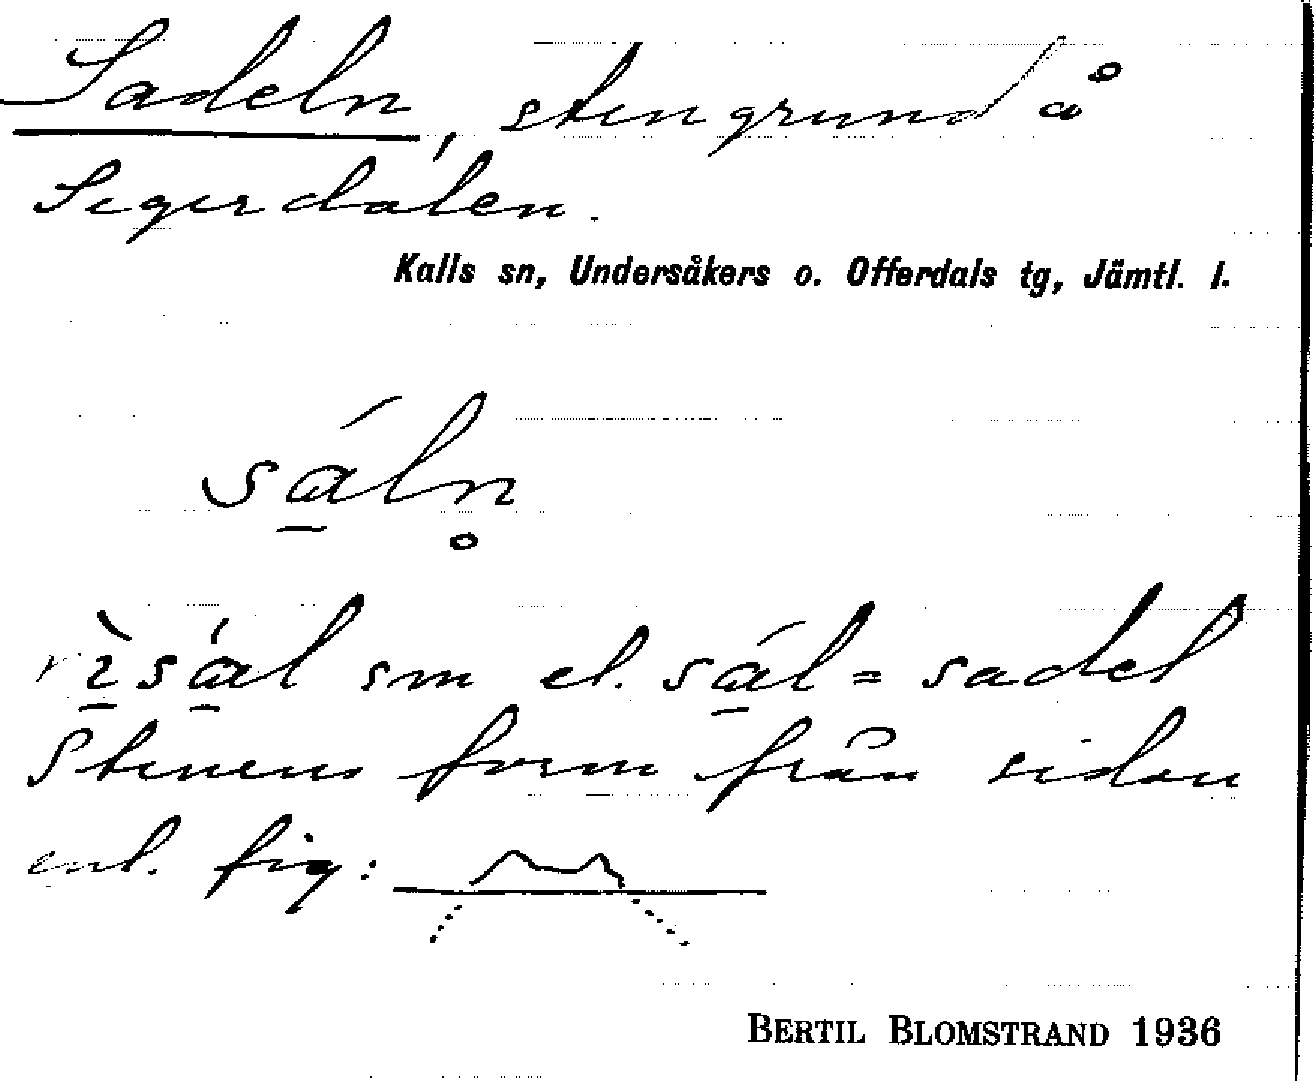 Sadeln, stengrund å
Segerdalen.
Kalls sn, Undersåkers o. Offerdals tg, Jämtl. l.
sa̱´ln̥
rì̱sa̱´l sm el. sa̱´l = sadel
Stenens form från sidan
enl. fig:
BERTIL BLOMSTRAND 1936